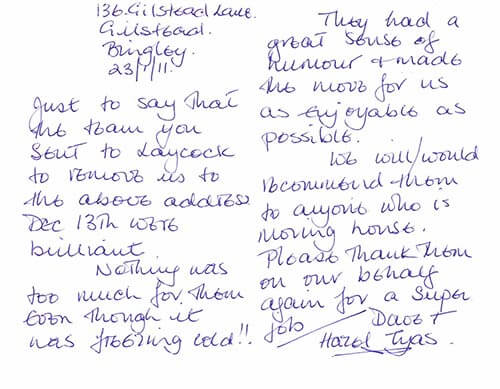 136 Gilstead Lane.
Gilstead.
Bingley.
23/1/11.
Just to say that
the team you
sent to Laycock
to remove us to
the above address
Dec 13th were
brilliant.
Nothing was
too much for them
even though it
was freezing cold!!
They had a
great sense of
humour & made
the move for us
as enjoyable as
possible.
We will/would
recommend them
to anyone who is
moving house.
Please thank them
on our behalf
again for a super
job
Dave &
Hazel Tyas.